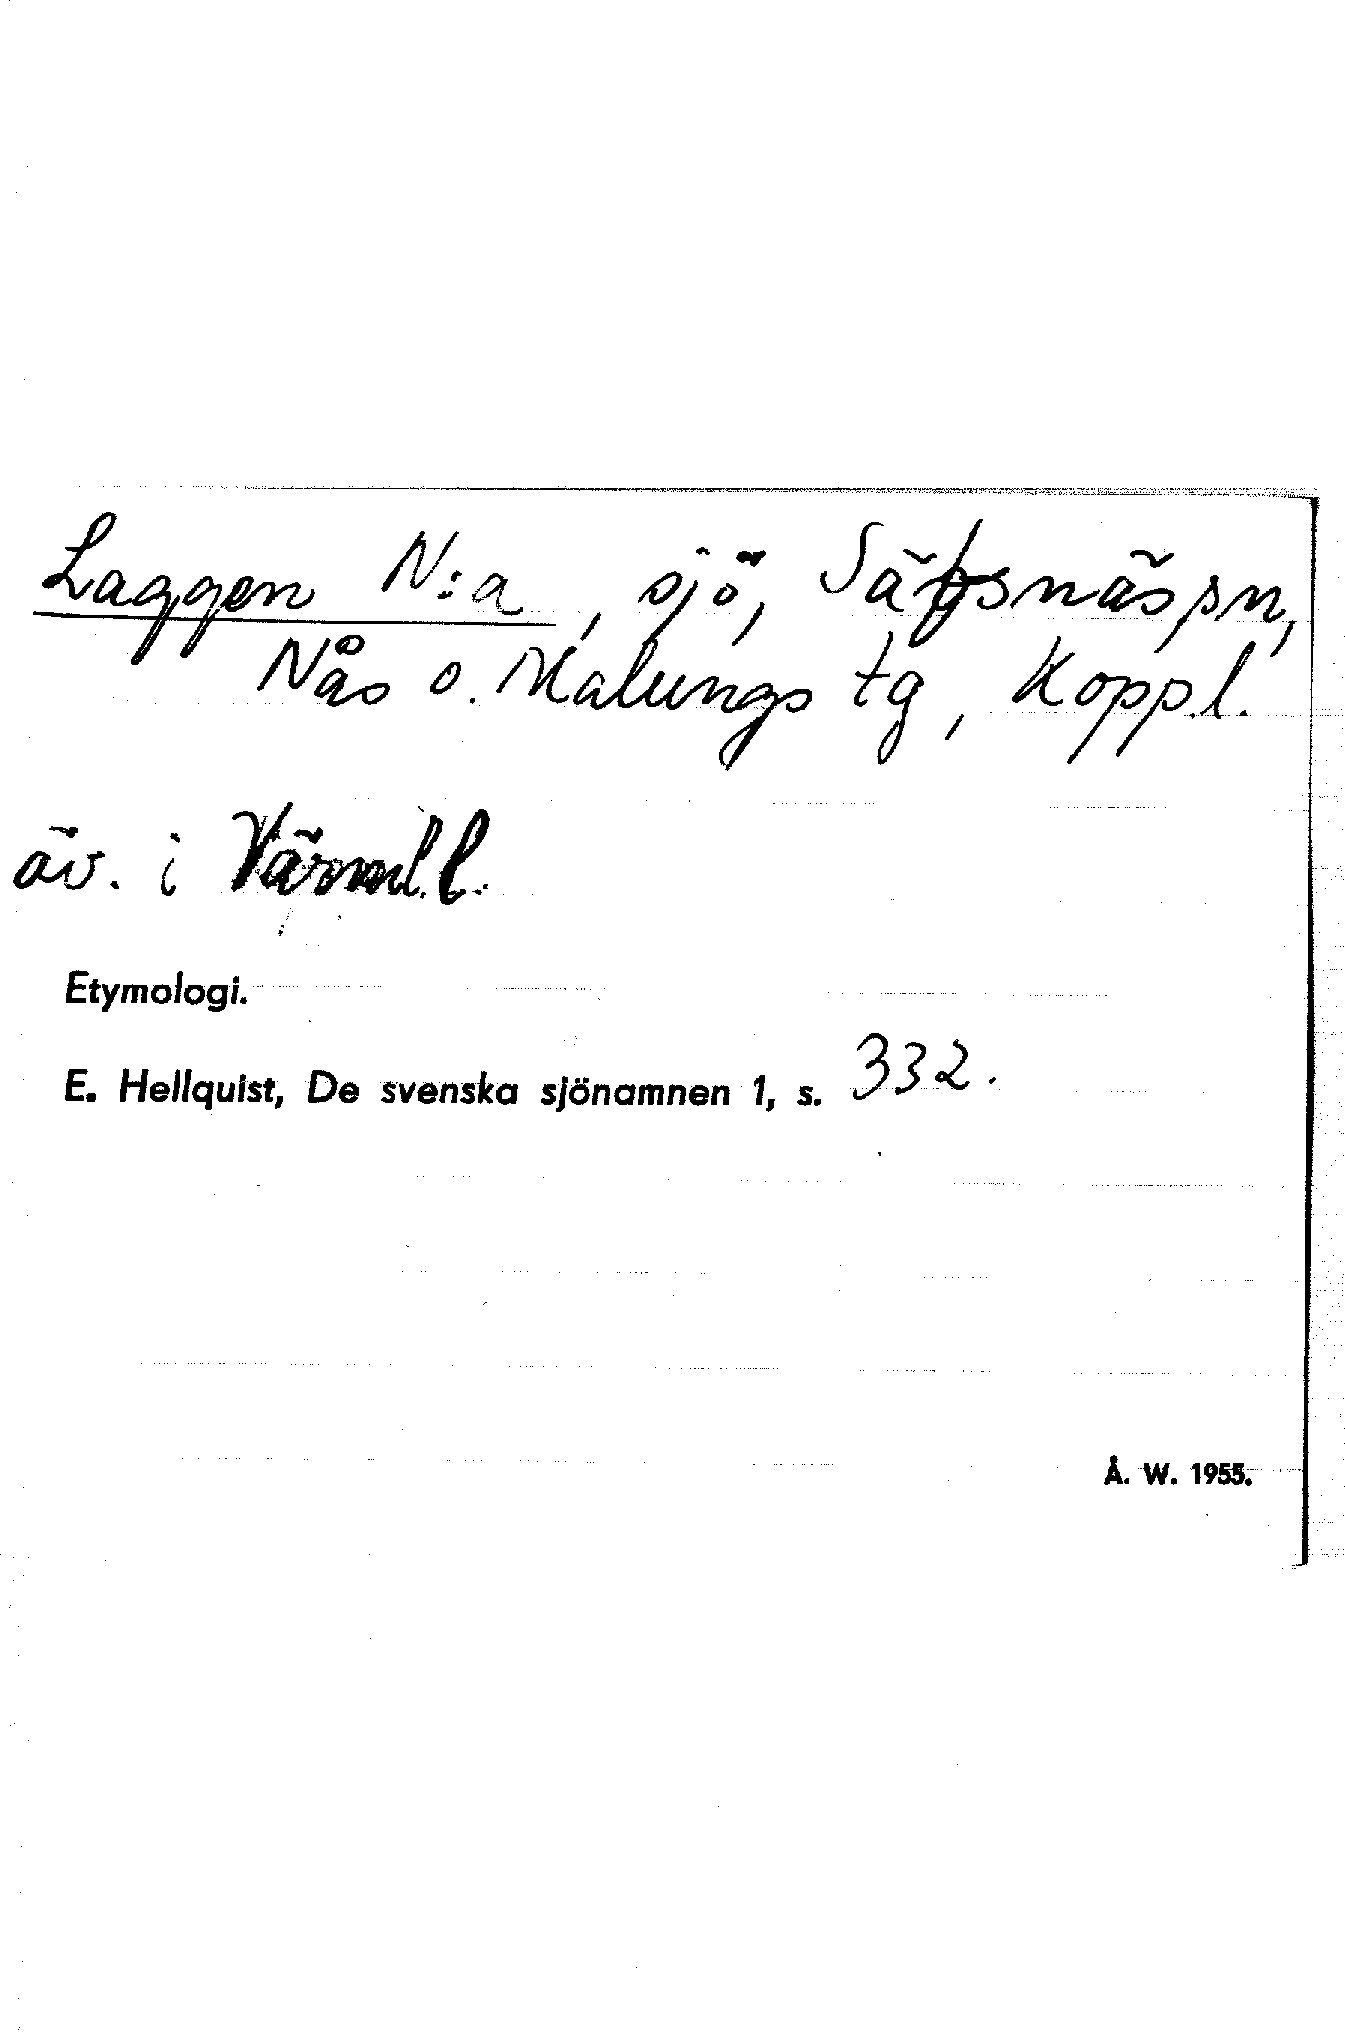 Laggen N:a, sjö, Säfsnäs sn,
Nås o. Malungs tg, Kopp.l.
äv. i Värml.l.
Etymologi.
E. Hellquist, De svenska sjönamnen 1, s. 332.
Å. W. 1955.